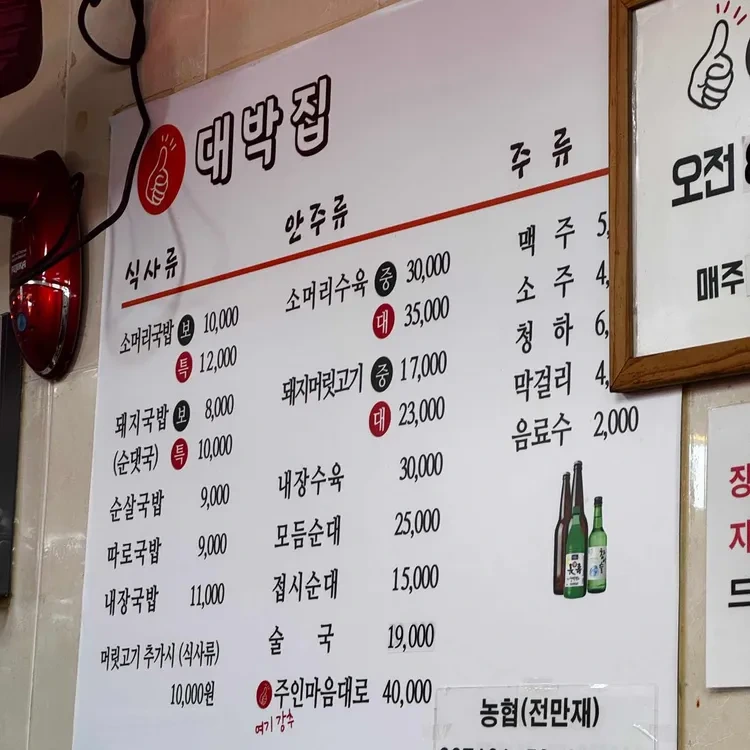 대박집
식사류
소머리국밥 보 10,000
특 12,000
돼지국밥 보 8,000
(순댓국) 특 10,000
순살국밥 9,000
따로국밥 9,000
내장국밥 11,000
머릿고기 추가시 (식사류)
10,000원
안주류
소머리수육 중 30,000
대 35,000
돼지머릿고기 중 17,000
대 23,000
내장수육 30,000
모듬순대 25,000
접시순대 15,000
술국 19,000
주인마음대로 40,000
여기 강추
주류
맥주 5,
소주 4,
청하 6,
막걸리 4,
음료수 2,000
농협(전만재)
오전
매주